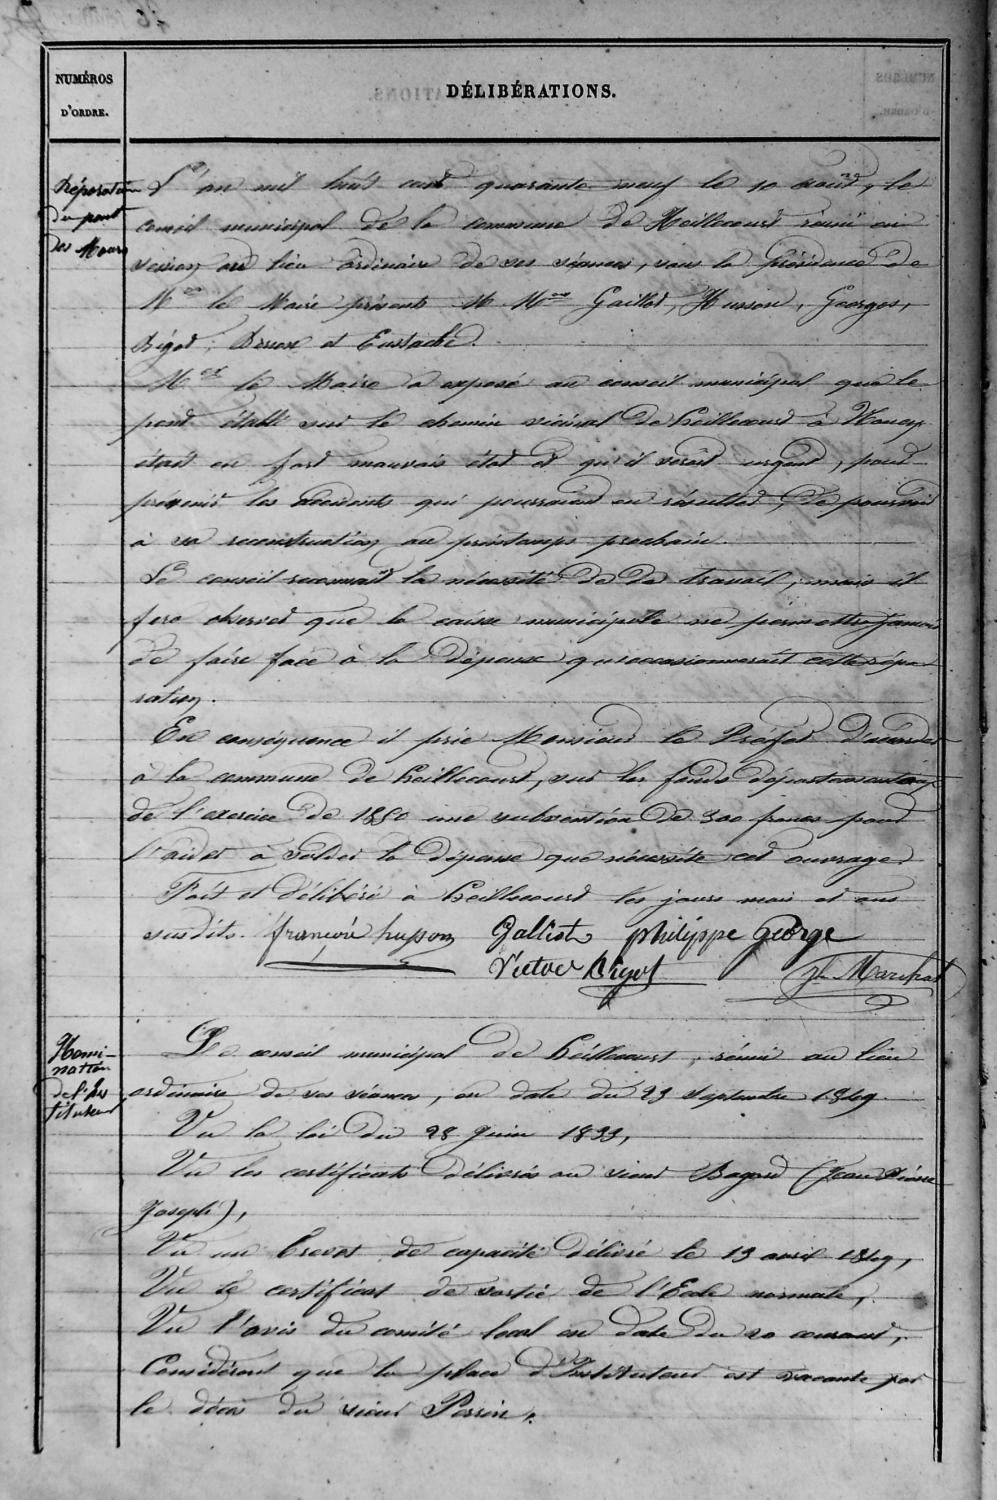 NUMÉROS
D'ORDRE.
DÉLIBÉRATIONS.
Réparation
du pont
des Mours
L'an mil huit cent quarante neuf le 10 aout, le
conseil municipal de la commune de Heillecourt réuni en
session au lieu ordinaire de ses séances, sous la présidence de
Mr le Maire présents M Mrs Galliot, Husson, Georges,
Bigot, et Eustache.
Mr le Maire a exposé au conseil municipal que le
pont établi sur le chemin vicinal de heillecourt à Nancy
était en fort mauvais état et qu'il serait urgent, pour
prévenir les accidents qui pourraient en résulter, de pourvoir
à sa reconstruction au printemps prochain.
Le conseil reconnait la nécessité de ce travail, mais il
fera observer que la caisse municipale ne permettra jamais
de faire face à la dépense qu'occasionnerait cette répa
ration.
En conséquence il prie Monsieur le Préfet d'accorder
à la commune de heillecourt, sur les fonds départementaux
de l'exercice de 1850 une subvention de 300 francs pour
l'aider à solder la dépense que nécessite cet ouvrage.
Fait et délibéré à heillecourt les jours mois et ans
susdits. françois husson Galliot philippe George
Victor Bigot Marchal
Nomi-
nation
de l'Ins
tituteur
Le conseil municipal de heillecourt, réuni au lieu
ordinaire de ses séances, en date du 23 septembre 1849.
Vu la loi du 28 Juin 1833,
Vu les certificats délivrés au sieur Bagard (Jean Pierre
Joseph),
Vu un brevet de capacité délivré le 13 avril 1849,
Vu le certificat de sortie de l'Ecole normale,
Vu l'avis du comité local en date du 20 courant,
Considérant que la place d'Instituteur est vacante par
le décès du sieur Perrin,